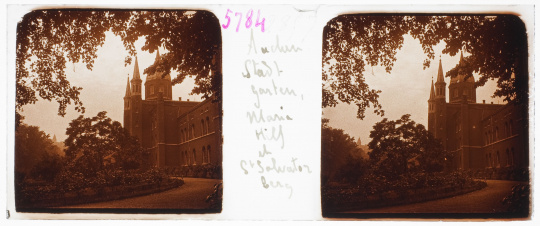 5784
Stadt
garten,
Maria
Hilf
et
St Salvator
Berg